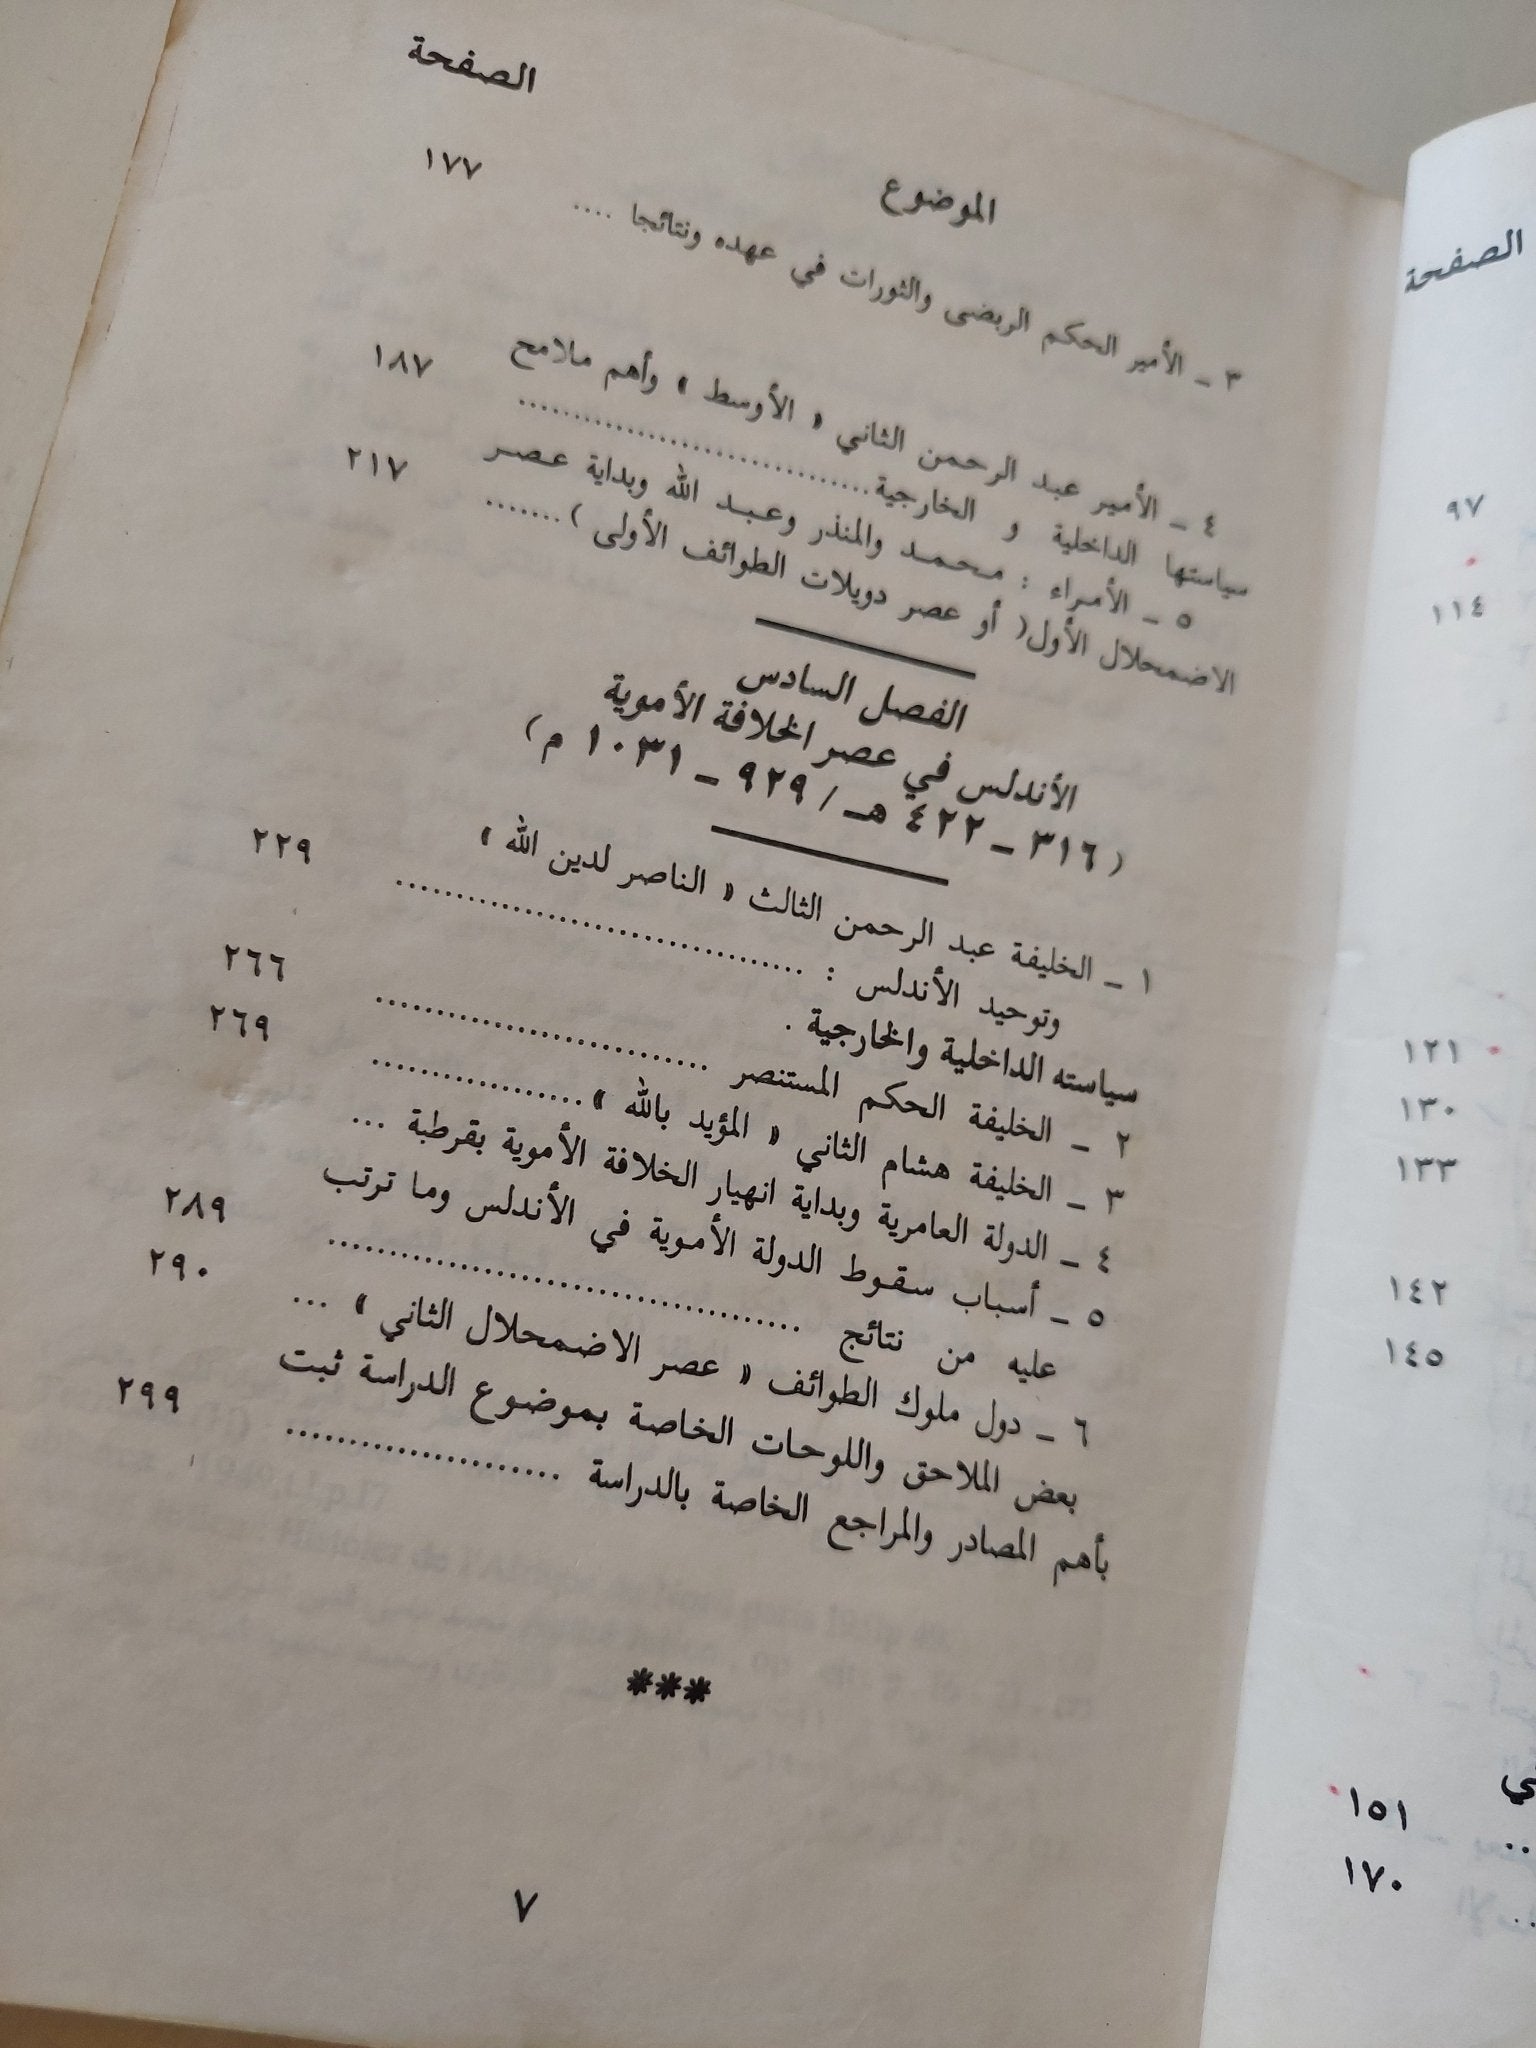 الموضوع الصفحة
٣ – الأمير الحكم الربضى والثورات في عهده ونتائجا .... ١٧٧
٤ – الأمير عبد الرحمن الثاني « الأوسط » وأهم ملامح
سياستها الداخلية و الخارجية................................ ١٨٧
٥ – الأمراء : محمد والمنذر وعبد الله وبداية عصر
الاضمحلال الأول( أو عصر دويلات الطوائف الأولى )....... ٢١٧
الفصل السادس
الأندلس في عصر الخلافة الأموية
( ٣١٦ – ٤٢٢ هـ / ٩٢٩ – ١٠٣١ م )
١ – الخليفة عبد الرحمن الثالث « الناصر لدين الله »
وتوحيد الأندلس : .................................. ٢٢٩
سياسته الداخلية والخارجية .
٢ – الخليفة الحكم المستنصر ............................ ٢٦٦
٣ – الخليفة هشام الثاني « المؤيد بالله ».................. ٢٦٩
٤ – الدولة العامرية وبداية انهيار الخلافة الأموية بقرطبة ...
٥ – أسباب سقوط الدولة الأموية في الأندلس وما ترتب
عليه من نتائج ...................................... ٢٨٩
٦ – دول ملوك الطوائف « عصر الاضمحلال الثاني » ... ٢٩٠
بعض الملاحق واللوحات الخاصة بموضوع الدراسة ثبت
بأهم المصادر والمراجع الخاصة بالدراسة ....................... ٢٩٩
***
٧
الصفحة
٩٧
١١٤
١٢١
١٣٠
١٣٣
١٤٢
١٤٥
١٥١
١٧٠